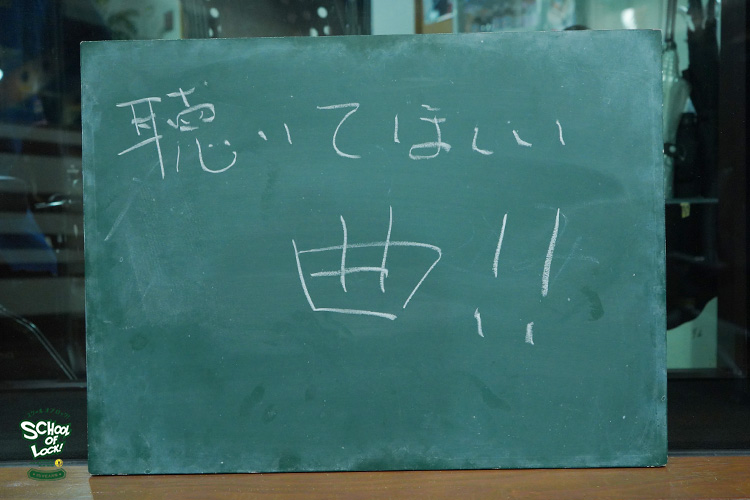 聴いてほしい
曲!!
SCHOOL
OF
LOCK!